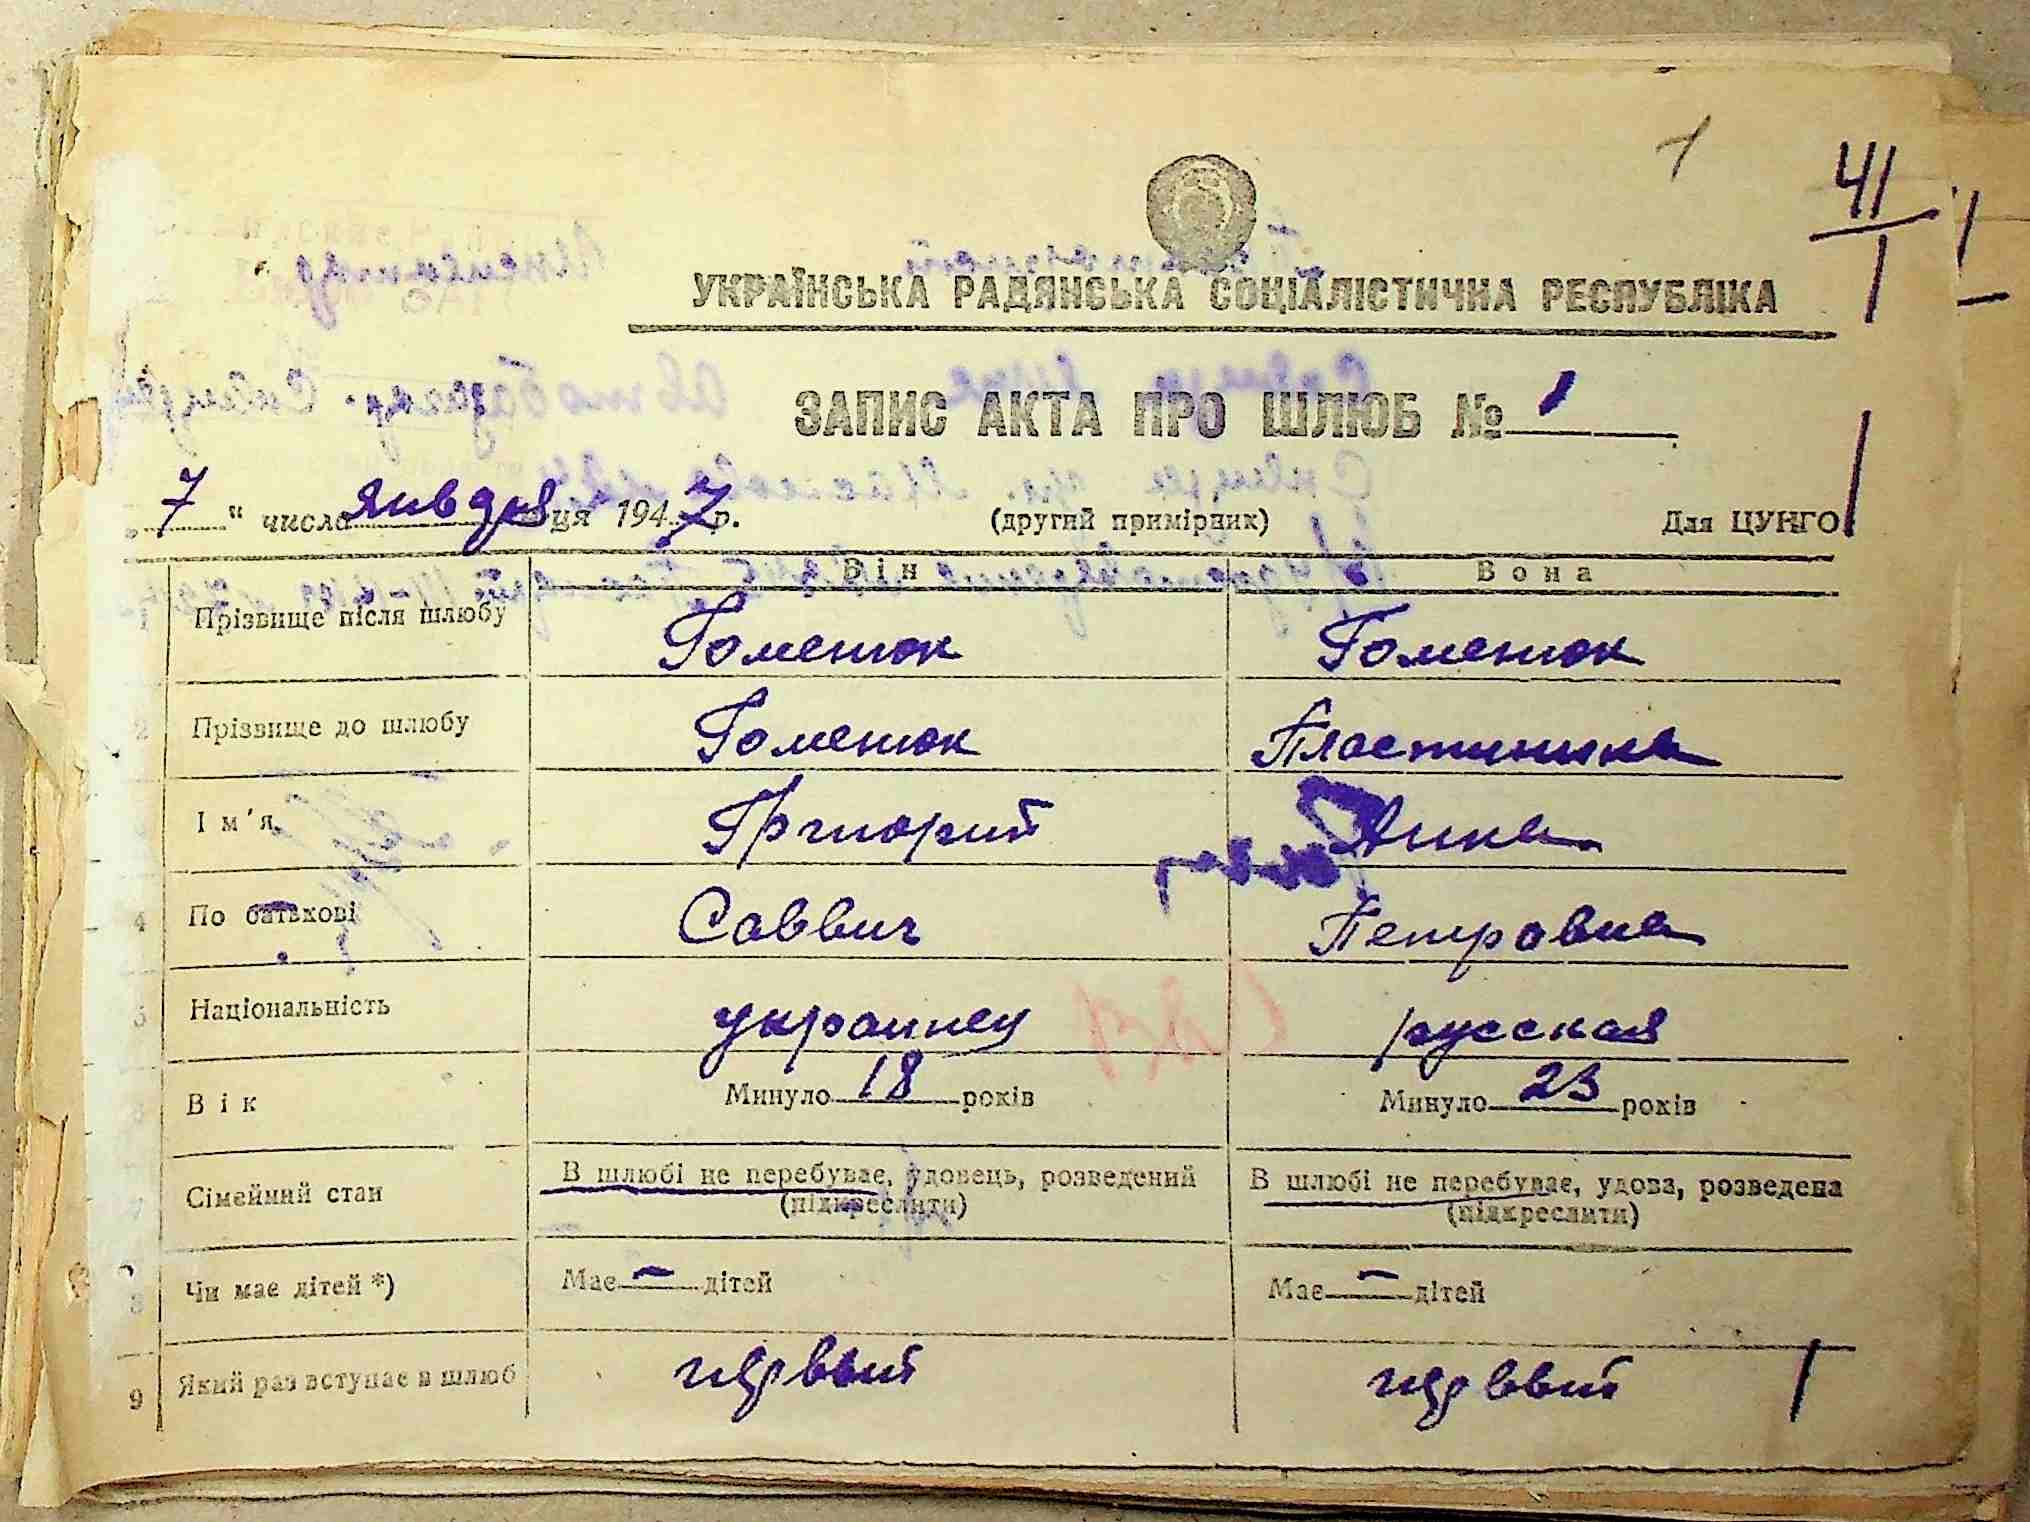 1
41
1
УКРАЇНСЬКА РАДЯНСЬКА СОЦІАЛІСТИЧНА РЕСПУБЛІКА
ЗАПИС АКТА ПРО ШЛЮБ № 1
„ 7 “ числа января ця 1947 р. (другий примірник) Для ЦУНГО
Він Вона
1 Прізвище після шлюбу Гоменюк Гоменюк
2 Прізвище до шлюбу Гоменюк Пластинина
Ім'я Григорий Нина
4 По батькові Саввич Петровна
5 Національність украинец русская
Вік Минуло 18 років Минуло 23 років
7 Сімейний стан В шлюбі не перебуває, удовець, розведений (підкреслити) В шлюбі не перебуває, удова, розведена (підкреслити)
8 Чи має дітей *) Має — дітей Має — дітей
9 Який раз вступає в шлюб первый первый